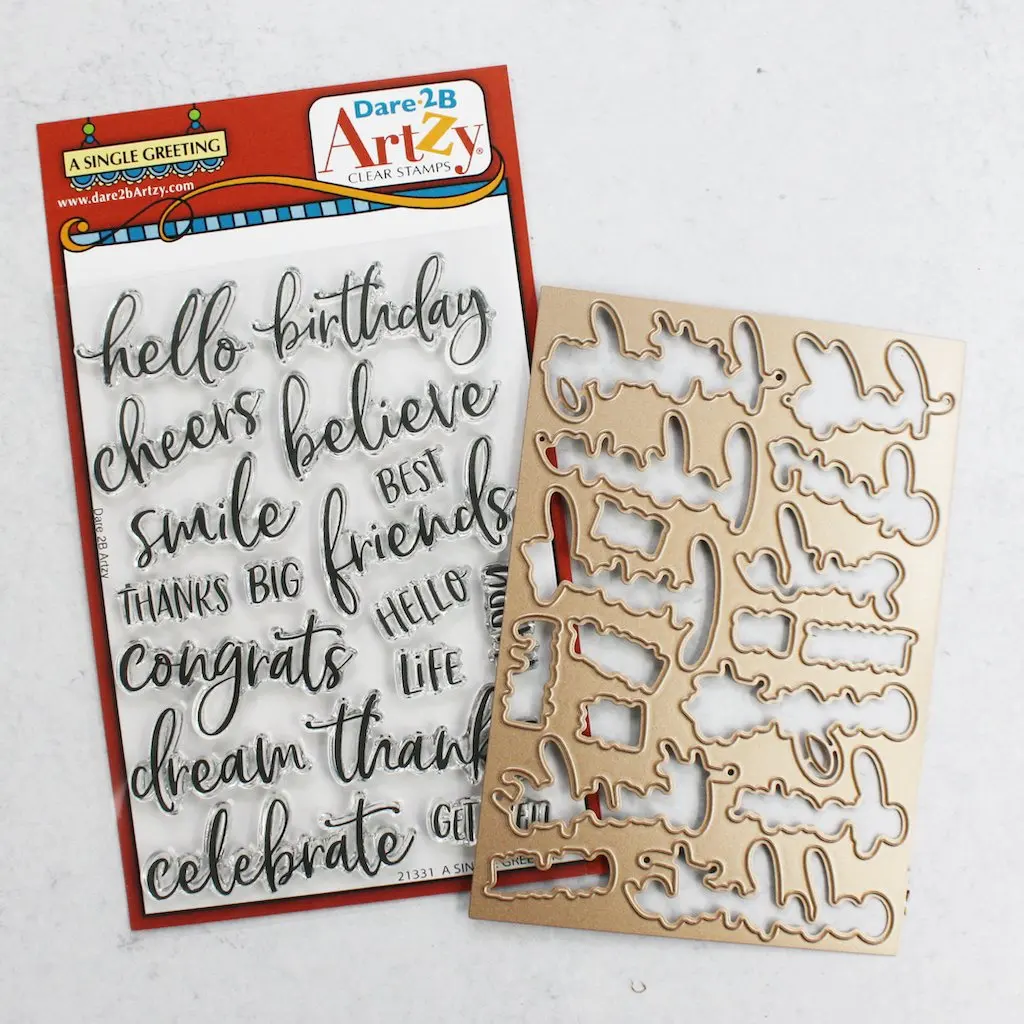 Dare·2B
ArtZy®
CLEAR STAMPS
A SINGLE GREETING
www.dare2bArtzy.com
hello birthday
cheers believe
BEST
smile friends
Dare 2B Artzy
THANKS BIG HELLO
congrats LiFE
dream thank
celebrate GET
21331 A SINGLE GREE